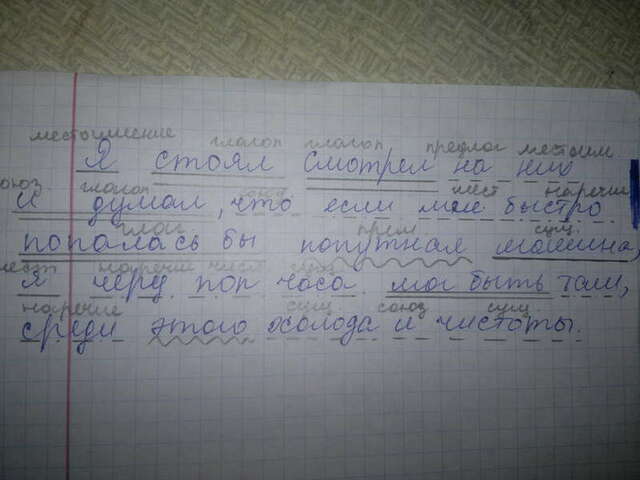 местоимение глагол глагол предлог местоим.
Я стоял смотрел на них
союз глагол союз мест наречие
и думал, что если мне быстро
глаг прил сущ.
попалась бы попутная машина,
мест наречие числ сущ
я через пол часа мог быть там,
наречие сущ союз сущ
среди этого холода и чистоты.